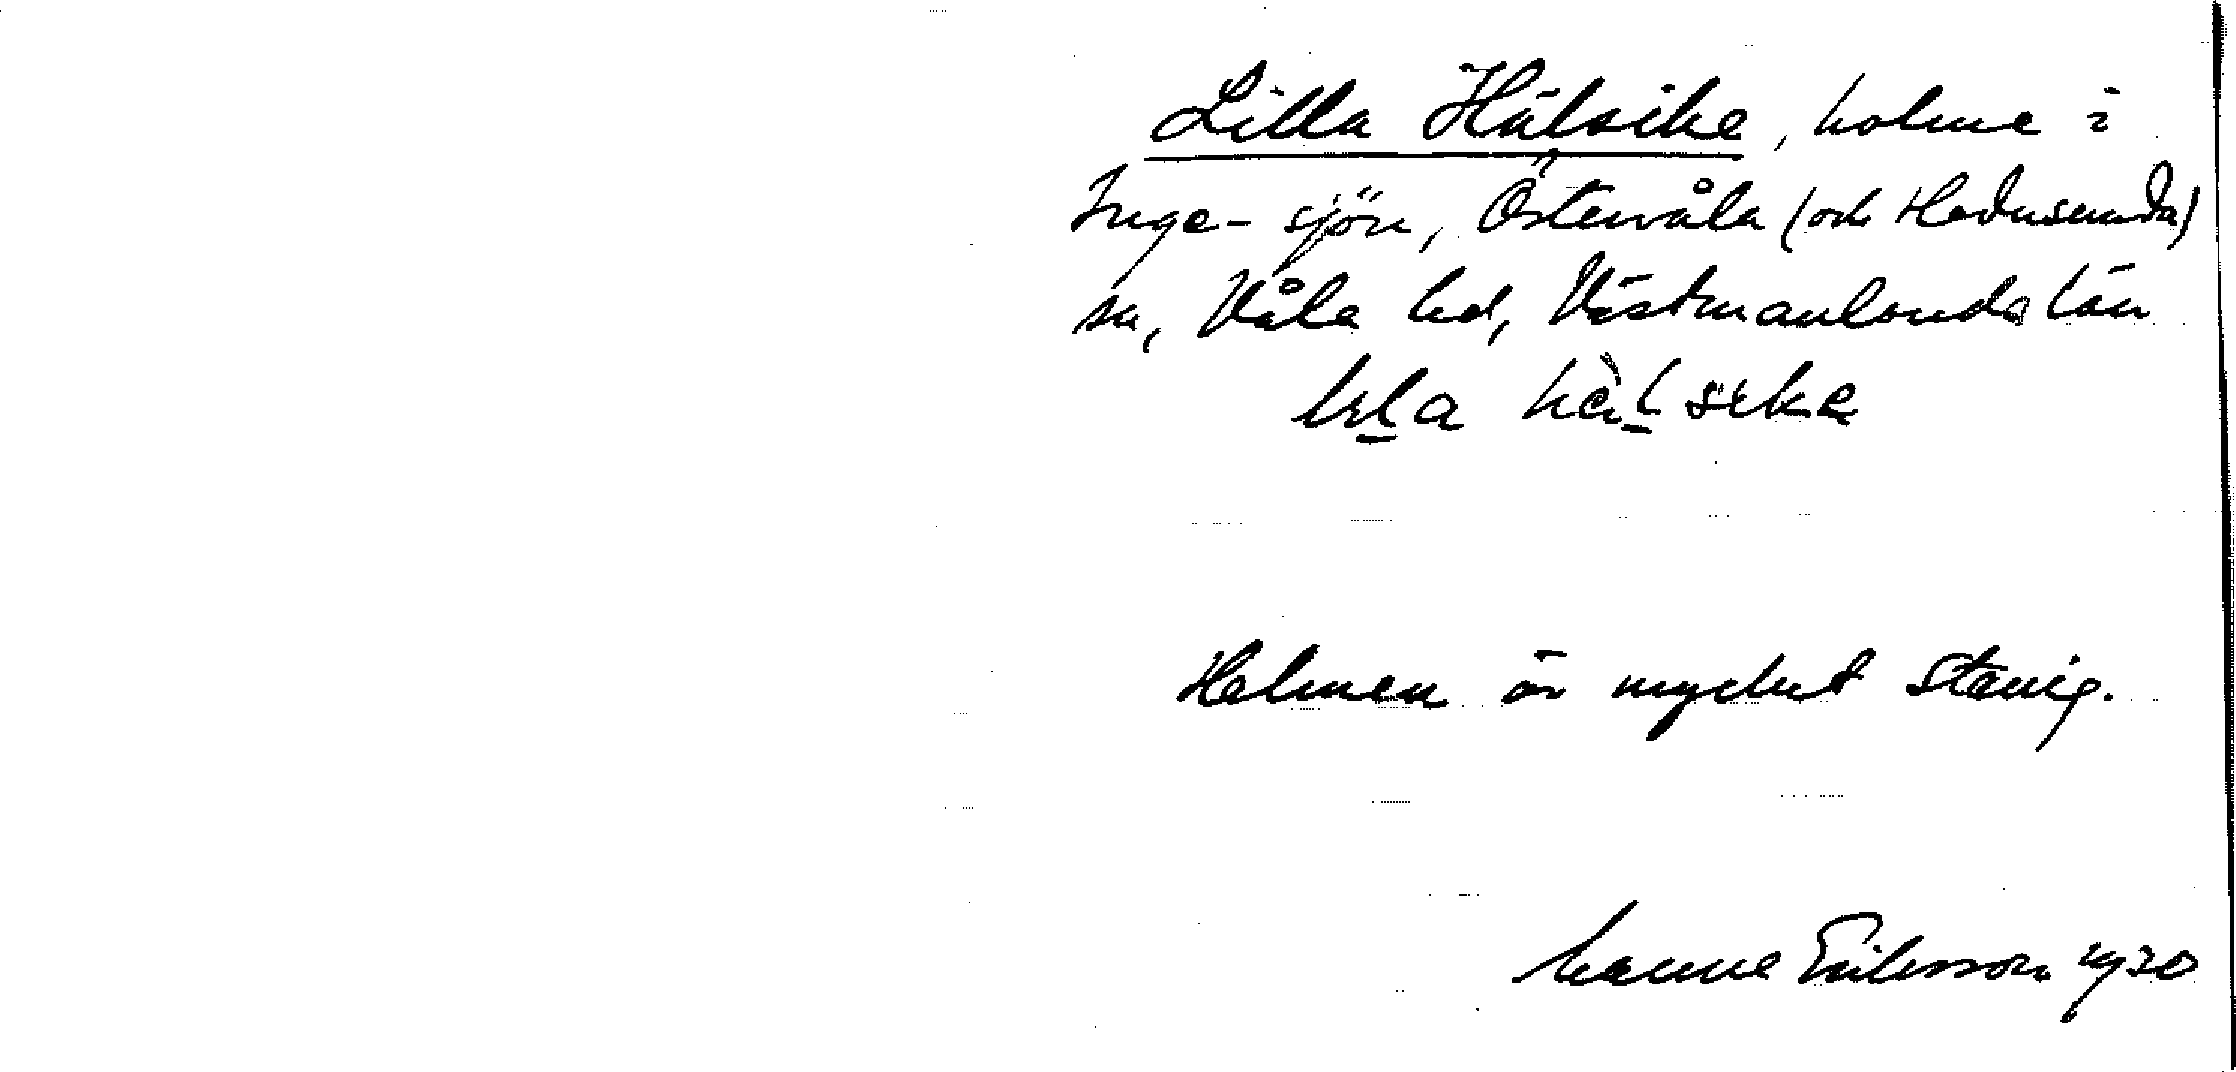 Lilla Hälsike, holme i
Inge-sjön, Östervåla (och Hedesunda)
sn, Våla hd, Västmanlands län
lɩla hä̀lsɩka
Holmen är mycket stenig.
Manne Eriksson 1930